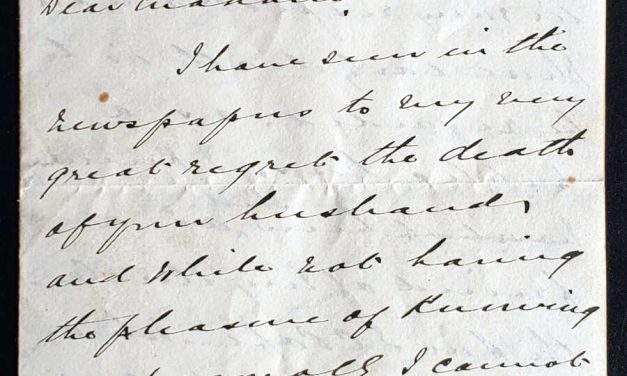 Dear Madam
I have seen in the
newspapers to my very
great regret the death
of your husband,
and while not having
the pleasure of knowing
I cannot